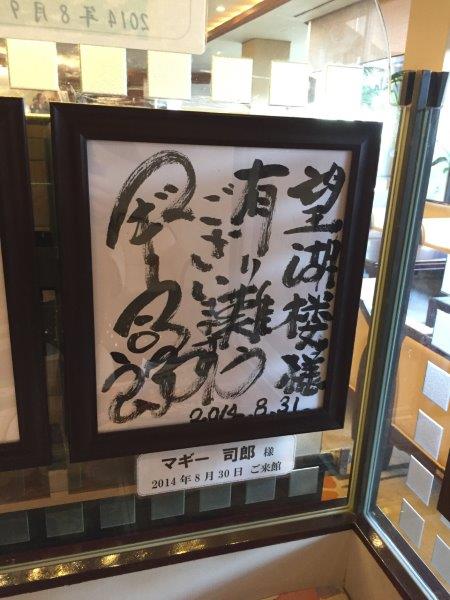 2014年8月9
望湖楼様
有り難う
ございます
マギー司郎
2014.8.31
マギー 司郎 様
2014年8月30日 ご来館